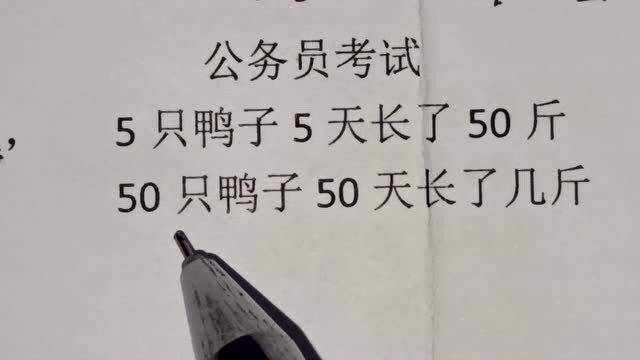 公务员考试
5只鸭子5天长了50斤
50只鸭子50天长了几斤